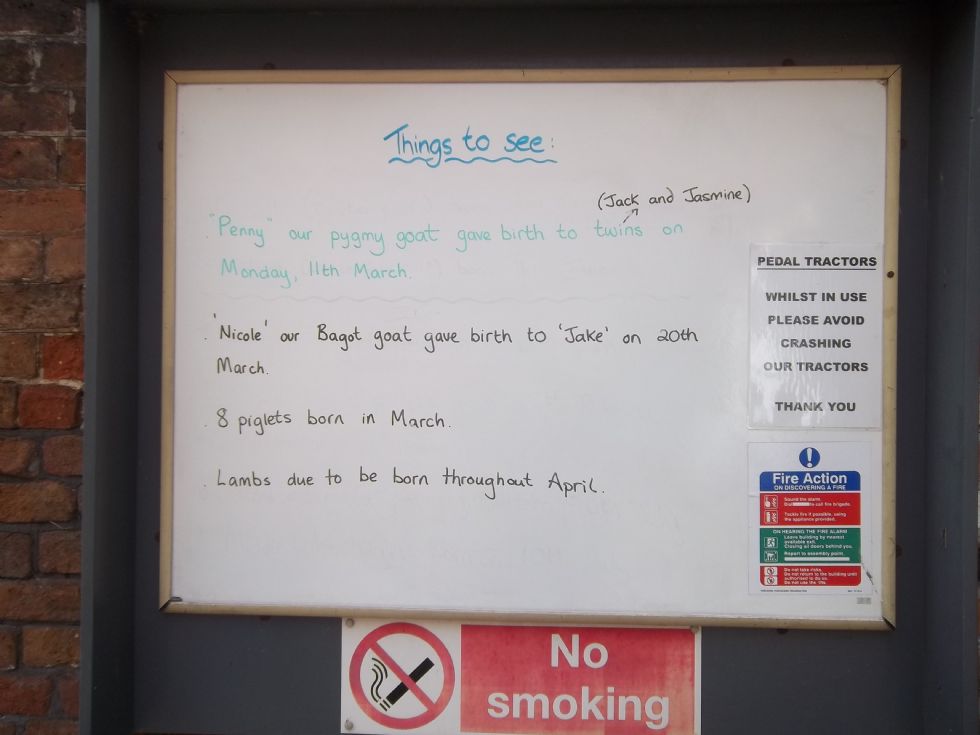 Things to see:
(Jack and Jasmine)
. "Penny" our pygmy goat gave birth to twins on
Monday, 11th March.
. 'Nicole' our Bagot goat gave birth to 'Jake' on 20th
March.
. 8 piglets born in March.
. Lambs due to be born throughout April.
PEDAL TRACTORS
WHILST IN USE
PLEASE AVOID
CRASHING
OUR TRACTORS
THANK YOU
Fire Action
ON DISCOVERING A FIRE
Sound the alarm.
Dial to call fire brigade.
Tackle fire if possible, using
the appliance provided.
ON HEARING THE FIRE ALARM
Leave building by nearest
available exit.
Closing all doors behind you.
Report to assembly point.
Do not take risks.
Do not return to the building until
authorised to do so.
Do not use the lifts.
No
smoking